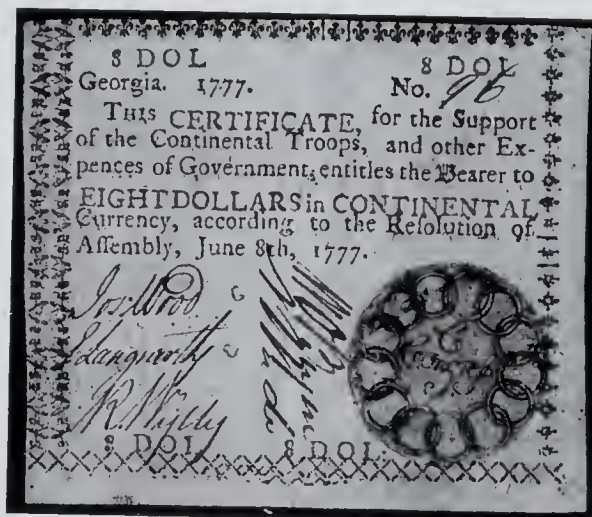 8 DOL 8 DOL
Georgia. 1777. No. 96
THIS CERTIFICATE, for the Support
of the Continental Troops, and other Ex-
pences of Government, entitles the Bearer to
EIGHT DOLLARS in CONTINENTAL
Currency, according to the Resolution of
Assembly, June 8th, 1777.
Jos Wood
E Langworthy
R. Wylly
8 DOL 8 DOL.